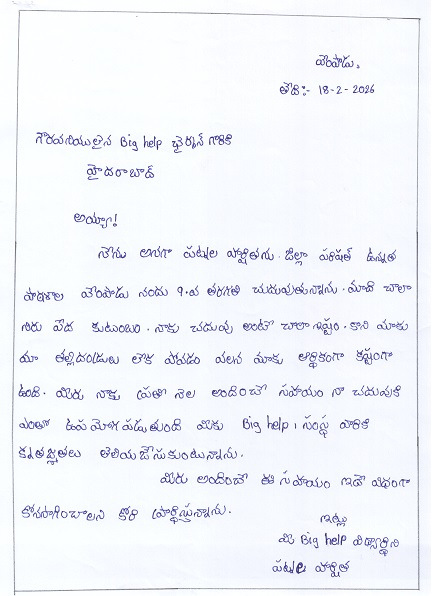 వెంపాడు,
తేది:- 18-2-2026
గౌరవనీయులైన Big help ఛైర్మన్ గారికి
హైదరాబాద్
అయ్యా!
నేను అనగా పట్నాల హర్షితను. జిల్లా పరిషత్ ఉన్నత
పాఠశాల వెంపాడు నందు 9.వ తరగతి చదువుతున్నాను. మాది చాలా
నిరు పేద కుటుంబం. నాకు చదువు అంటే చాలా ఇష్టం. కాని మాకు
మా తల్లిదండ్రులు లేక పోవడం వలన మాకు ఆర్థికంగా కష్టంగా
ఉంది. మీరు నాకు ప్రతి నెల అందించే సహాయం నా చదువుకి
ఎంతో ఉపయోగపడుతుంది మీకు Big help, సంస్థ వారికి
కృతజ్ఞతలు తెలియజేసుకుంటున్నాను.
మీరు అందించే ఈ సహాయం ఇదే విధంగా
కొనసాగించాలని కోరి ప్రార్థిస్తున్నాను.
ఇట్లు
మీ Big help విద్యార్థిని
పట్నాల హర్షిత